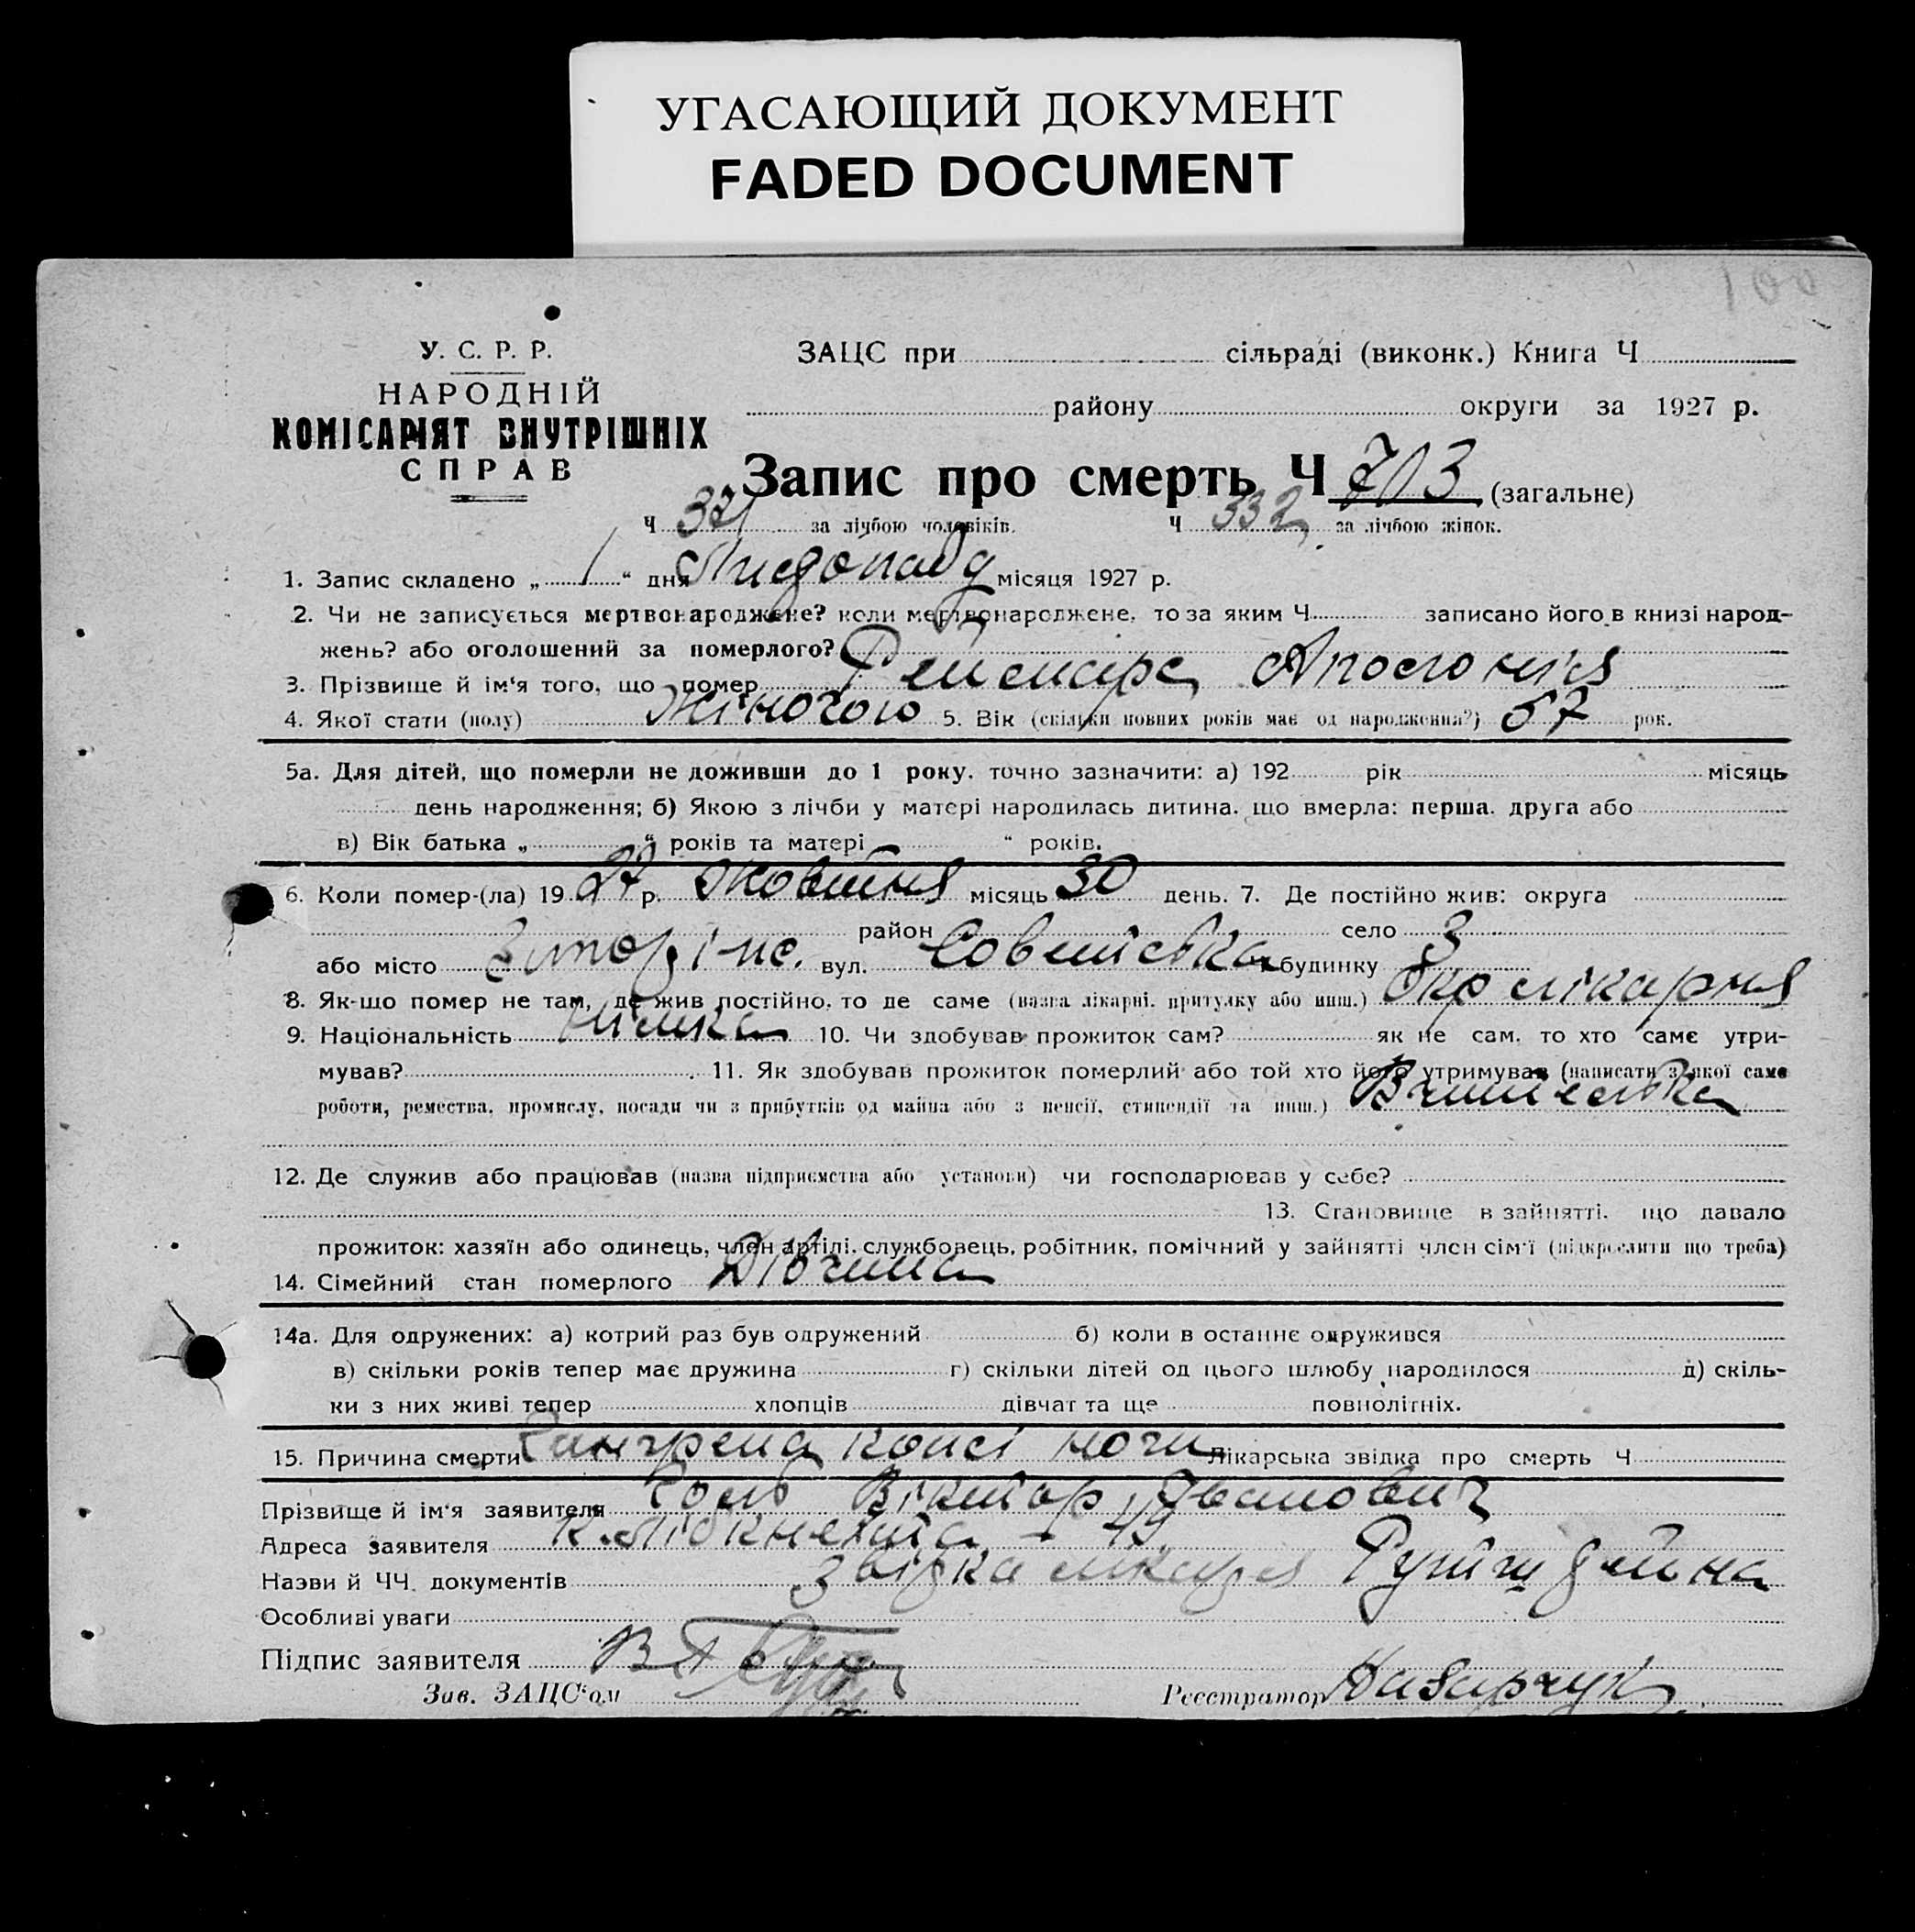 УГАСАЮЩИЙ ДОКУМЕНТ
FADED DOCUMENT
У. С. Р. Р.
НАРОДНІЙ
КОМІСАРІЯТ ВНУТРІШНІХ
СПРАВ
ЗАЦС при сільраді (виконк.) Книга Ч
району округи за 1927 р.
Запис про смерть Ч 703 (загальне)
Ч 371 за лічбою чоловіків. Ч 332 за лічбою жінок.
1. Запис складено „ 1 “ дня Листопаду місяця 1927 р.
2. Чи не записується мертвонароджене? коли мертвонароджене, то за яким Ч записано його в книзі народ-
жень? або оголошений за померлого?
3. Прізвище й ім'я того, що помер Аполонія
4. Якої стати (полу) Жіночою 5. Вік (скільки повних років має од народження?) 57 рок.
5а. Для дітей, що померли не доживши до 1 року, точно зазначити: а) 192 рік місяць
день народження; б) Якою з лічби у матері народилась дитина, що вмерла: перша, друга або
в) Вік батька „ “ років та матері “ років.
6. Коли помер-(ла) 19 27 р. Жовтня місяць 30 день. 7. Де постійно жив: округа
район село
або місто вул. Совєтська будинку 3
8. Як-що помер не там, де жив постійно, то де саме (назва лікарні, притулку або инш.) Окр лікарня
9. Національність Німка 10. Чи здобував прожиток сам? як не сам, то хто саме утри-
мував? 11. Як здобував прожиток померлий або той хто його утримував (написати з якої саме
роботи, ремества, промислу, посади чи з прибутків од майна або з пенсії, стипендії та инш.) Вчителька
12. Де служив або працював (назва підприємства або установи) чи господарював у себе?
13. Становище в зайнятті, що давало
прожиток: хазяїн або одинець, член артілі, службовець, робітник, помічний у зайнятті член сім'ї (підкреслити що треба)
14. Сімейний стан померлого Дівчина
14а. Для одружених: а) котрий раз був одружений б) коли в останнє одружився
в) скільки років тепер має дружина г) скільки дітей од цього шлюбу народилося д) скіль-
ки з них живі тепер хлопців дівчат та ще повнолітніх.
15. Причина смерти Гангрена ноги Лікарська звідка про смерть Ч
Прізвище й ім'я заявителя Віктор Іванович
Адреса заявителя К. Лібкнехта - 49
Назви й ЧЧ. документів Звідка лікаря
Особливі уваги
Підпис заявителя
Зав. ЗАЦС'ом Реєстратор